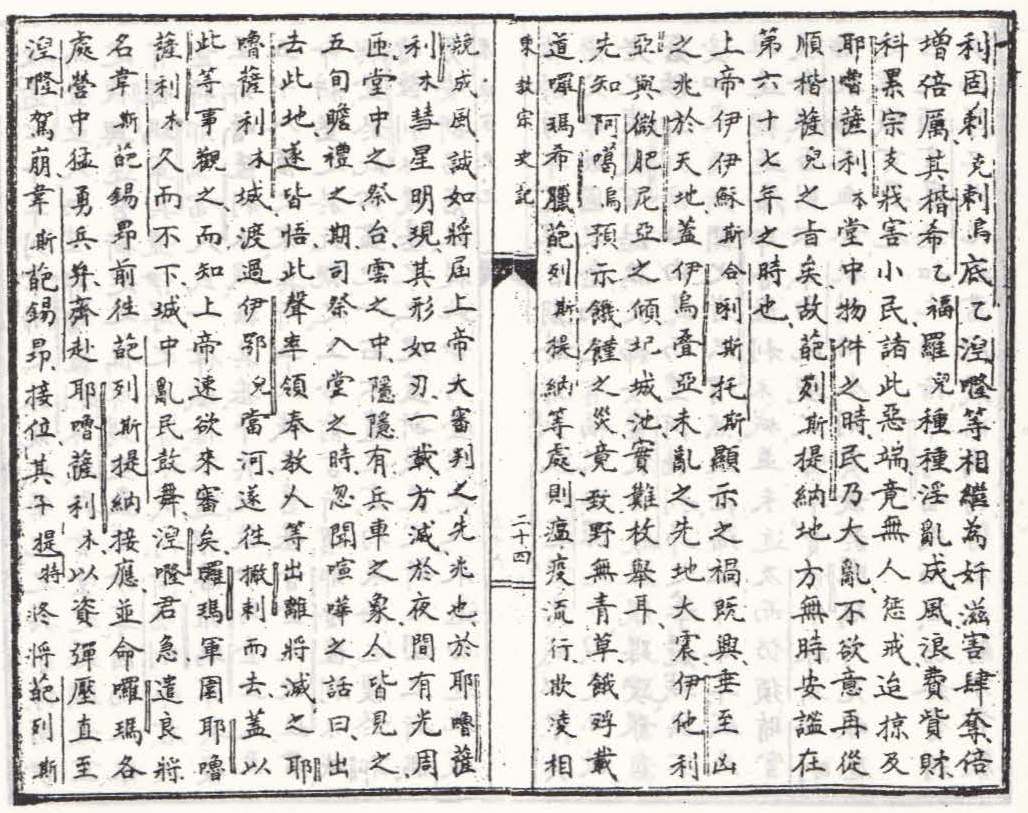 利固剌、克剌烏底乙湼隥等相繼為奸滋害肆奪倍
增倍厲其楷希乙福羅兒種種淫亂成風浪費貲財、
科累宗支戕害小民諸此惡端竟無人懲戒迫掠及
耶嚕薩利木堂中物件之時民乃大亂不欲意再從
順楷薩兒之旨矣故葩列斯提納地方無時安謐在
第六十七年之時也
上帝伊伊穌斯合唎斯托斯顯示之禍既興垂至凶
之兆於天地蓋伊烏疊亞未亂之先地大震伊他利
亞與微肥尼亞之傾圮城池實難枚舉耳
先知阿噶烏預示饑饉之災竟致野無青草餓殍載
道囉瑪希臘葩列斯提納等處則瘟疫流行欺凌相
東教宗史記
二十四
競成風誠如將屆上帝大審判之先兆也、於耶嚕薩
利木彗星明現其形如刃一載方滅於夜間有光周
匝堂中之祭台雲之中隱隱有兵車之象人皆見之
五旬瞻禮之期司祭入堂之時忽聞喧嘩之話曰出
去此地遂皆悟此聲率領奉教人等出離將滅之耶
嚕薩利木城渡過伊鄂兒當河遂往撇剌而去蓋以
此等事觀之而知上帝速欲來審矣囉瑪軍圍耶嚕
薩利木久而不下城中亂民鼓舞湼隥君急遣良將
名韋斯葩錫昂前往葩列斯提納接應並命囉瑪各
處營中猛勇兵弁齊赴耶嚕薩利木以資彈壓直至
湼隥駕崩韋斯葩錫昂接位其子提特終將葩列斯